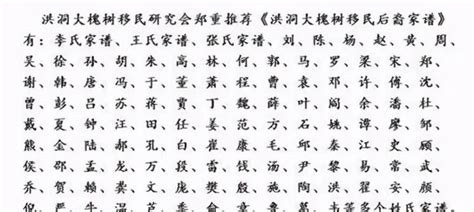 洪洞大槐树移民研究会郑重推荐《洪洞大槐树移民后裔家谱》
有：李氏家谱、王氏家谱、张氏家谱、刘、陈、杨、赵、黄、周、
吴、徐、孙、胡、朱、高、林、何、郭、马、罗、梁、宋、郑、
谢、韩、唐、冯、于、董、萧、程、曹、袁、邓、许、傅、沈、
曾、彭、吕、苏、蒋、贾、丁、魏、薛、叶、阎、余、潘、杜、
戴、夏、钟、汪、田、任、姜、范、方、石、姚、谭、廖、邹、
熊、金、陆、郝、孔、白、崔、康、毛、邱、秦、江、史、顾、
侯、邵、孟、龙、万、段、雷、钱、汤、尹、黎、易、常、武、
乔、贺、赖、龚、文、庞、樊、殷、施、陶、洪、翟、安、
倪、严、牛、温、芦、季、俞、章、鲁、葛、韦等多个姓氏家谱。